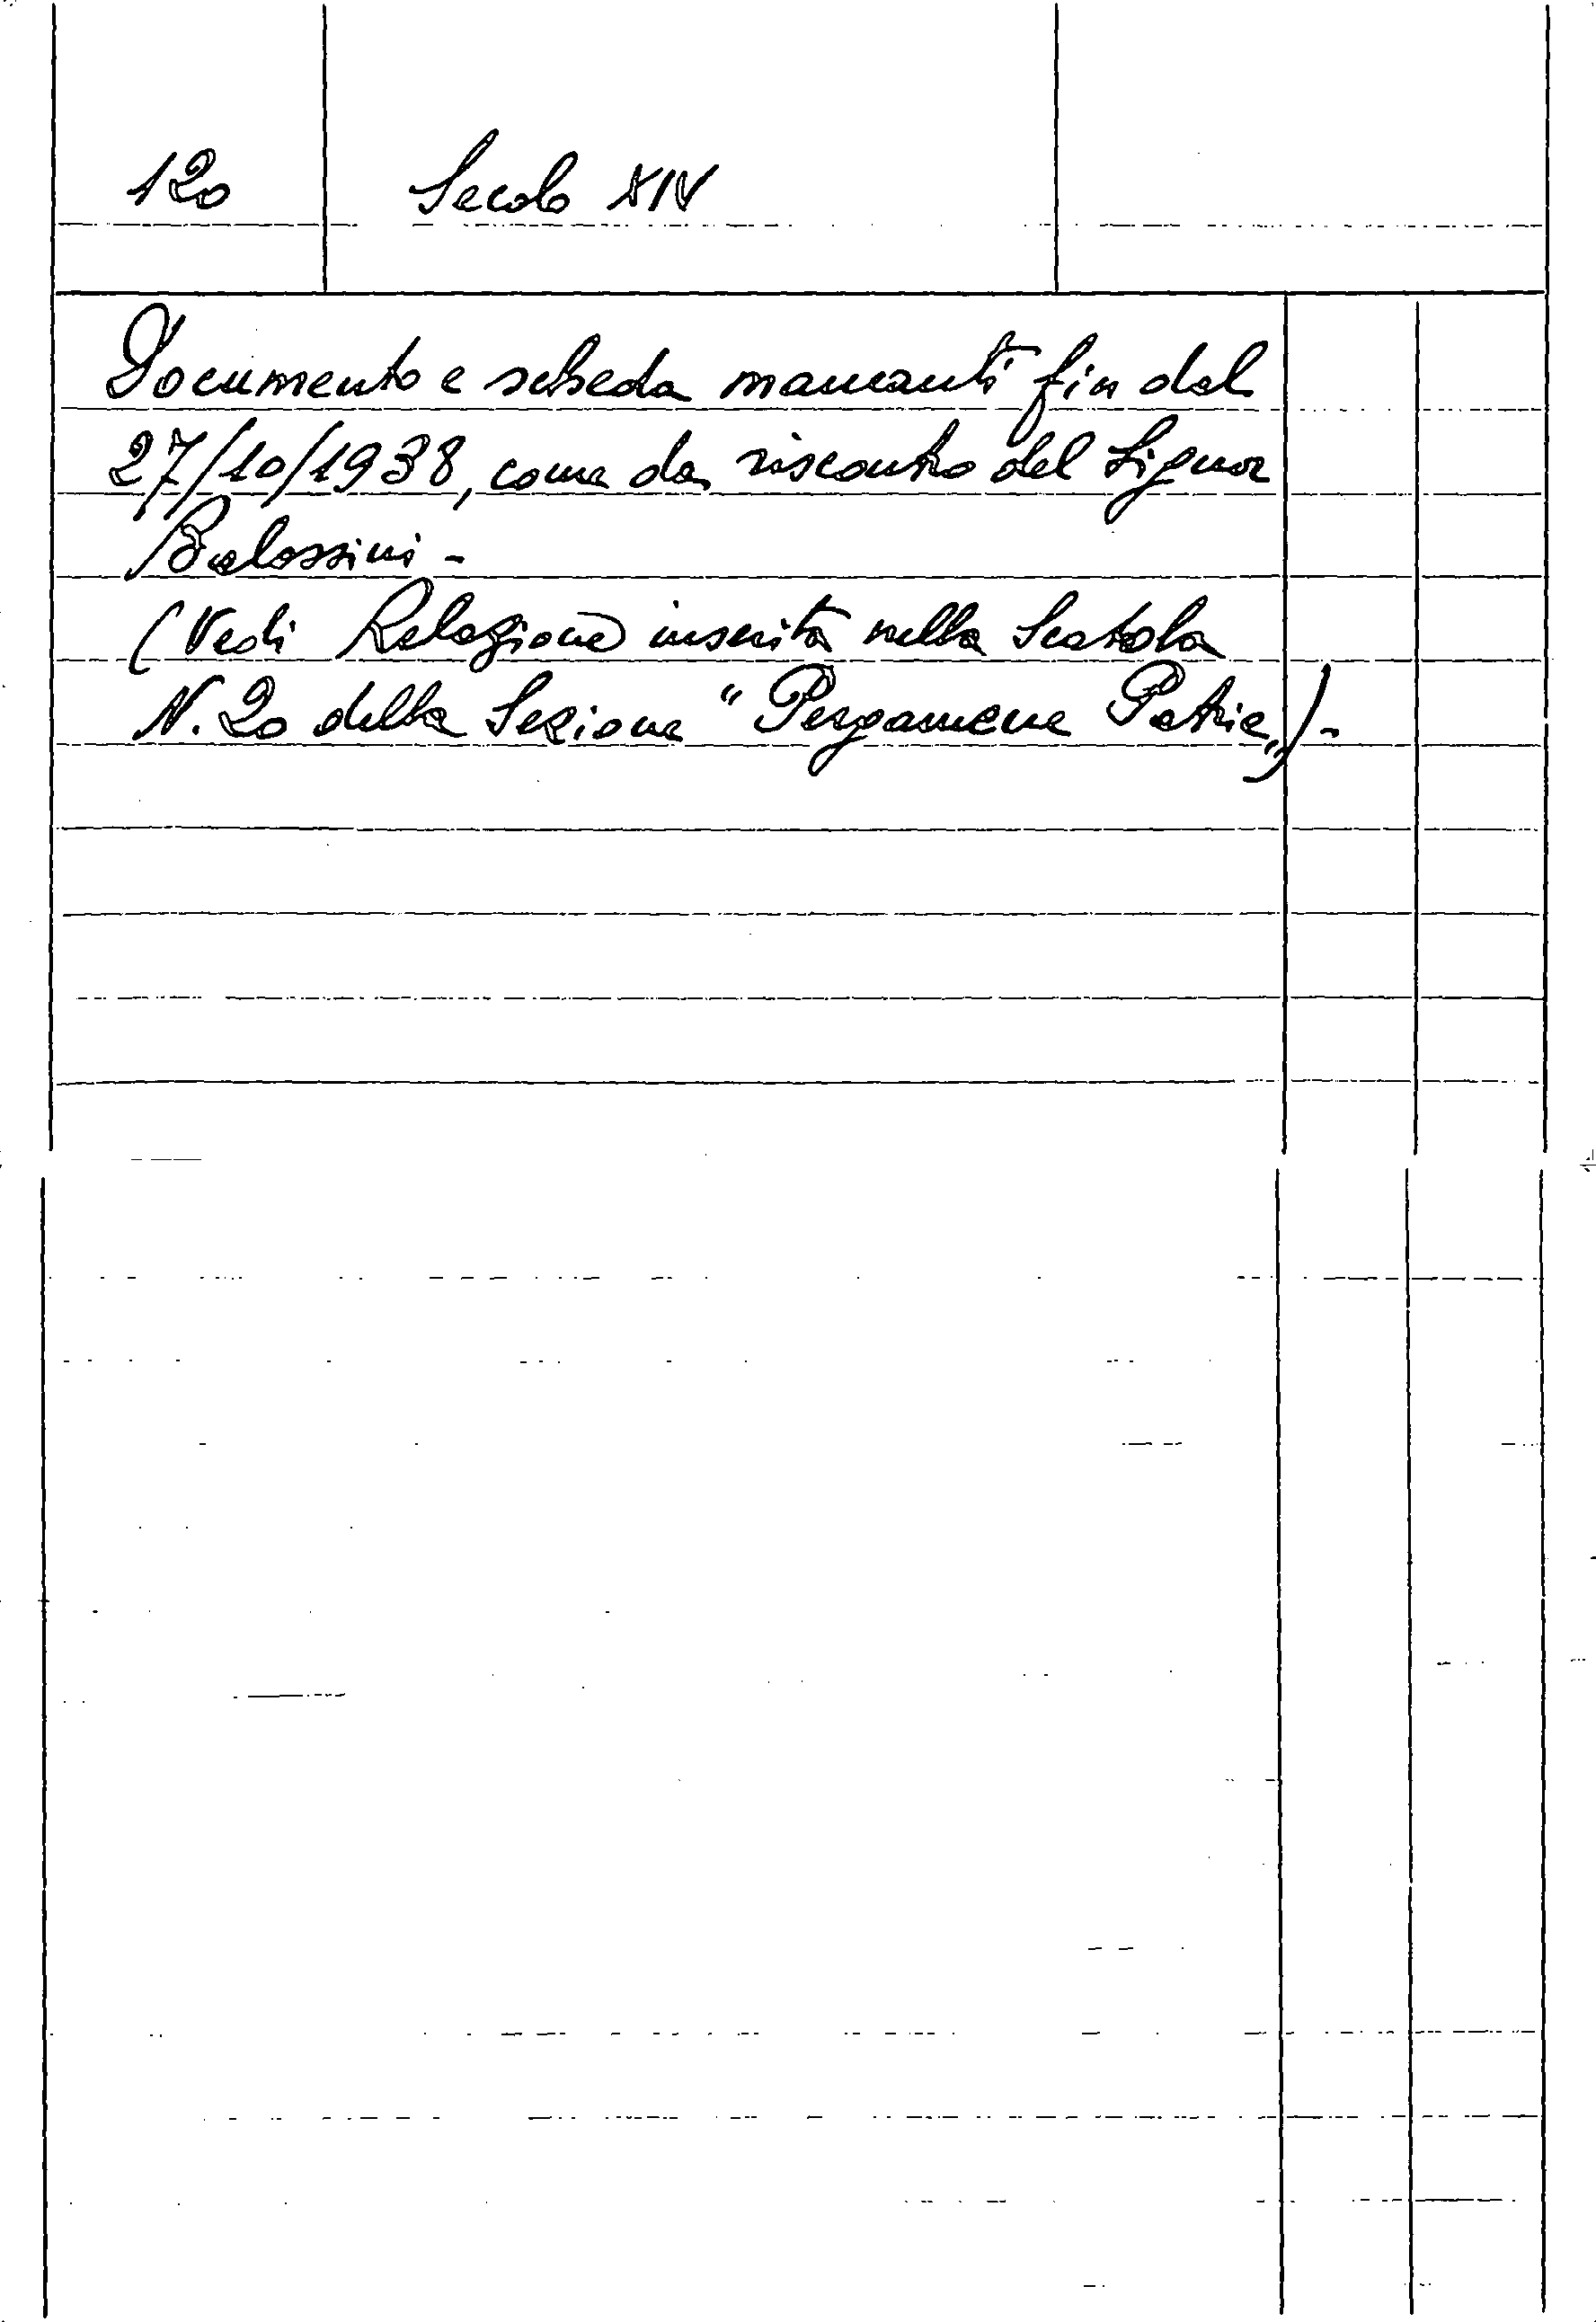 120 Secolo XIV
Documento e scheda mancanti fin dal
27/10/1938, come da riscontro del Signor
Balossini -
(Vedi Relazione inserita nella Scatola
N. 20 della Sezione "Pergamene Patrie") -